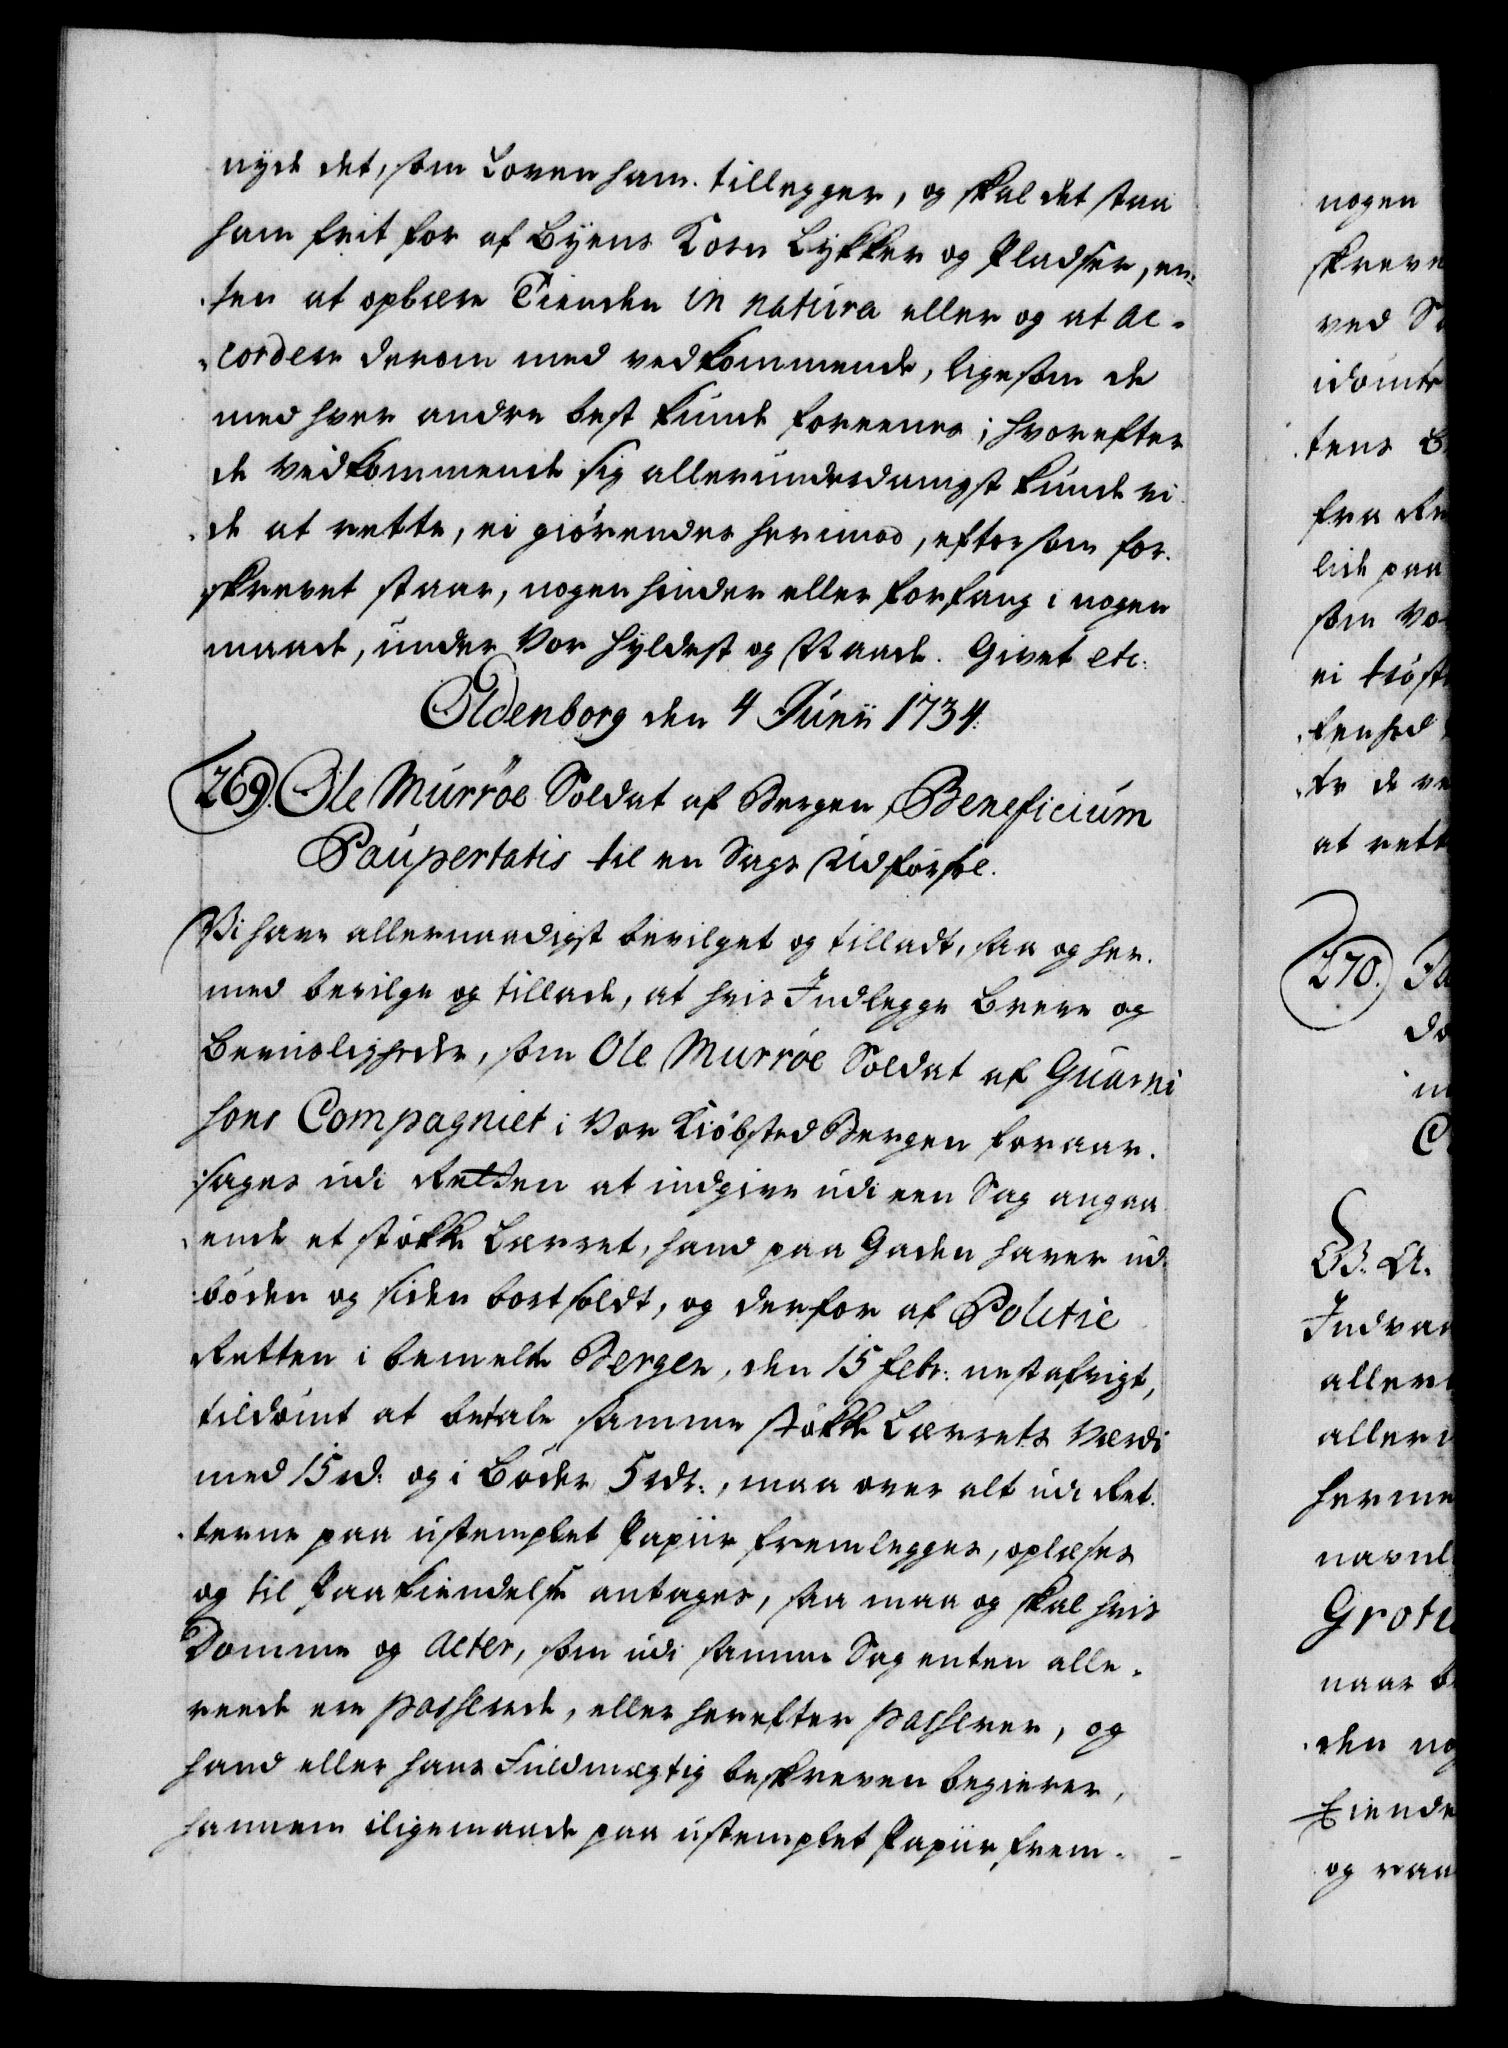 nyde det, som Loven ham tillegger, og skal det staa
ham frit for af Byens Korn Lykker og Pladser, en-
ten at opbære Tienden in natura eller og at ac-
cordere derom med vedkommende, ligesom de
med hver andre best kunde foreenes; hvorefter
de vedkommende sig allerunderdanigst kunde vi-
de at rette, ei giørendes herimod, eftersom for-
skrevet staar, nogen hinder eller forfang i nogen
maade, under Vor Hyldest og Naade. Givet etc:
Oldenborg den 4 Junii 1734.
269. Ole Murrøe Soldat af Bergen Beneficium
Paupertatis til en Sags Udførsel.
Vi have allernaadigst bevilget og tilladt, saa og her-
med bevilge og tillade, at hvis Indlegge Breve og
Beviisligheder, som Ole Murrøe Soldat af Guarni
sons Compagniet i Vor Kiøbsted Bergen foraar-
sages udi Retten at indgive udi een Sag angaa
ende et støkke Lærret, hand paa Gaden haver ud-
bøden og siden bortsoldt, og derfor af Politie
Retten i bemelte Bergen, den 15 Febr: nestafvigt,
tildømt at betale samme støkke Lærrets Værdi
med 15 rd. og i Bøder 5 rdr., maa over alt udi Ret-
terne paa ustemplet Papiir fremlegges, oplæses
og til Paakiendelse antages, saa maa og skal hvis
Domme og Acter, som udi samme Sag enten alle-
reede ere passerede, eller herefter passerer, og
hand eller hans Fuldmægtig beskreven begierer,
hannem iligemaade paa ustemplet Papiir frem-
nogen
skreve
ved
idømte
tens
fra
lide paa
som
ei trøste
at rett
270.
Indvaa
aller
aller
herme
navnl
Grotu
naar
den
kiende
og